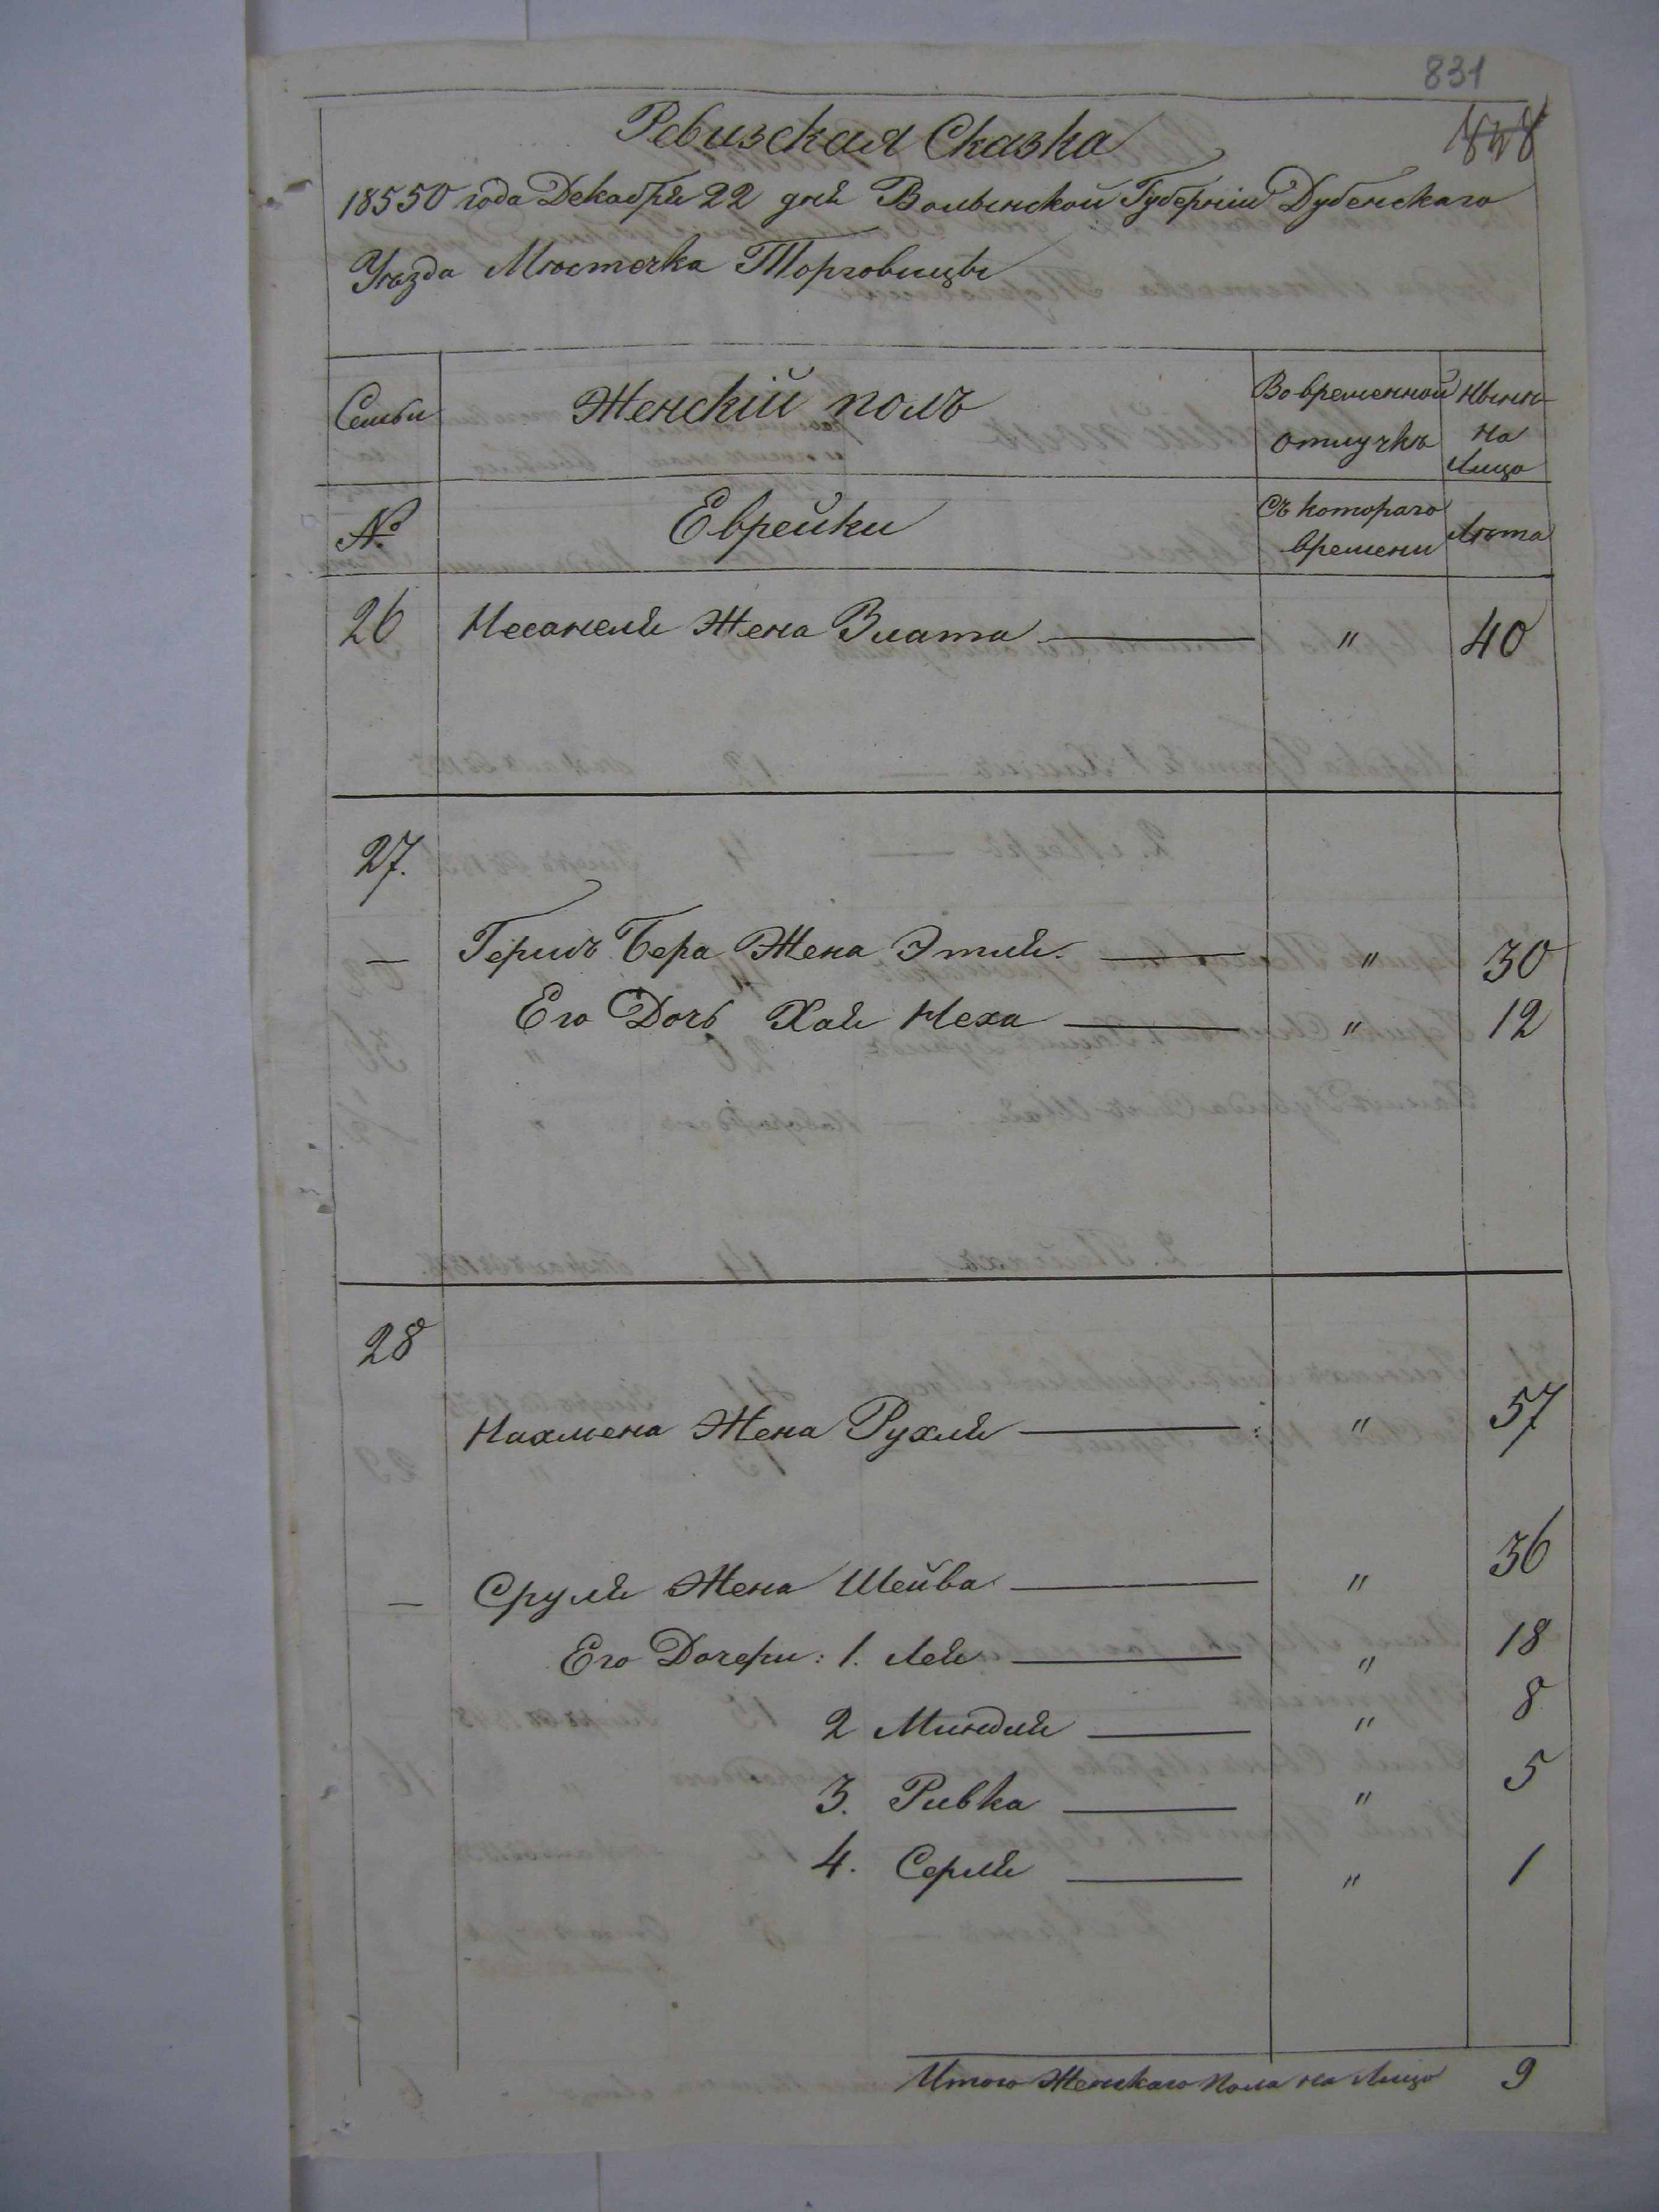 831
828
Ревизская Сказка
18550 года Декабря 22 дня Волынской Губернiи Дубенскаго
Уѣзда Мѣстечка Торговицы
Семьи
Женскiй полъ
Во временной
отлучкѣ
Нынѣ
на
Лицо
№
Еврейки
Съ котораго
времени
Лѣта
26 Несанеля Жена Злата — " 40
27.
— Гершъ Бера Жена Этля — " 30
Его Дочь Хая Неха — " 12
28
Нахмена Жена Рухля — " 57
— Сруля Жена Шейва — " 36
Его Дочери: 1. Лея — " 18
2 Миндля — " 8
3. Ривка — " 5
4. Серля — " 1
Итого Женскаго пола на Лицо 9